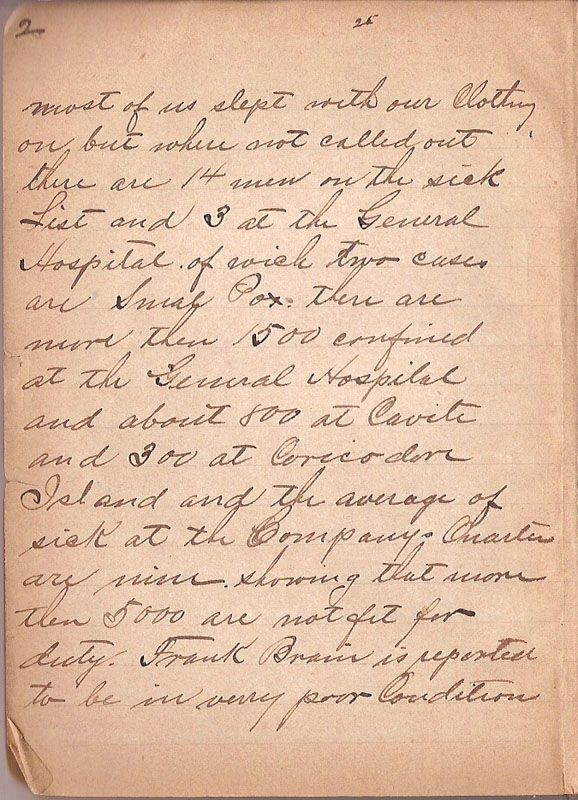 2
25
most of us slept with our Clothing
on, but where not called out
there are 14 men on the sick
List and 3 at the General
Hospital. of wich two cases
are Smal Pox. there are
more then 1500 confined
at the General Hospital
and about 800 at Cavite
and 300 at Coricodore
Island and the average of
sick at the Companys Quarter
are nine. showing that more
then 5000 are not fit for
duty. Frank Brain is reported
to be in verry poor Condition